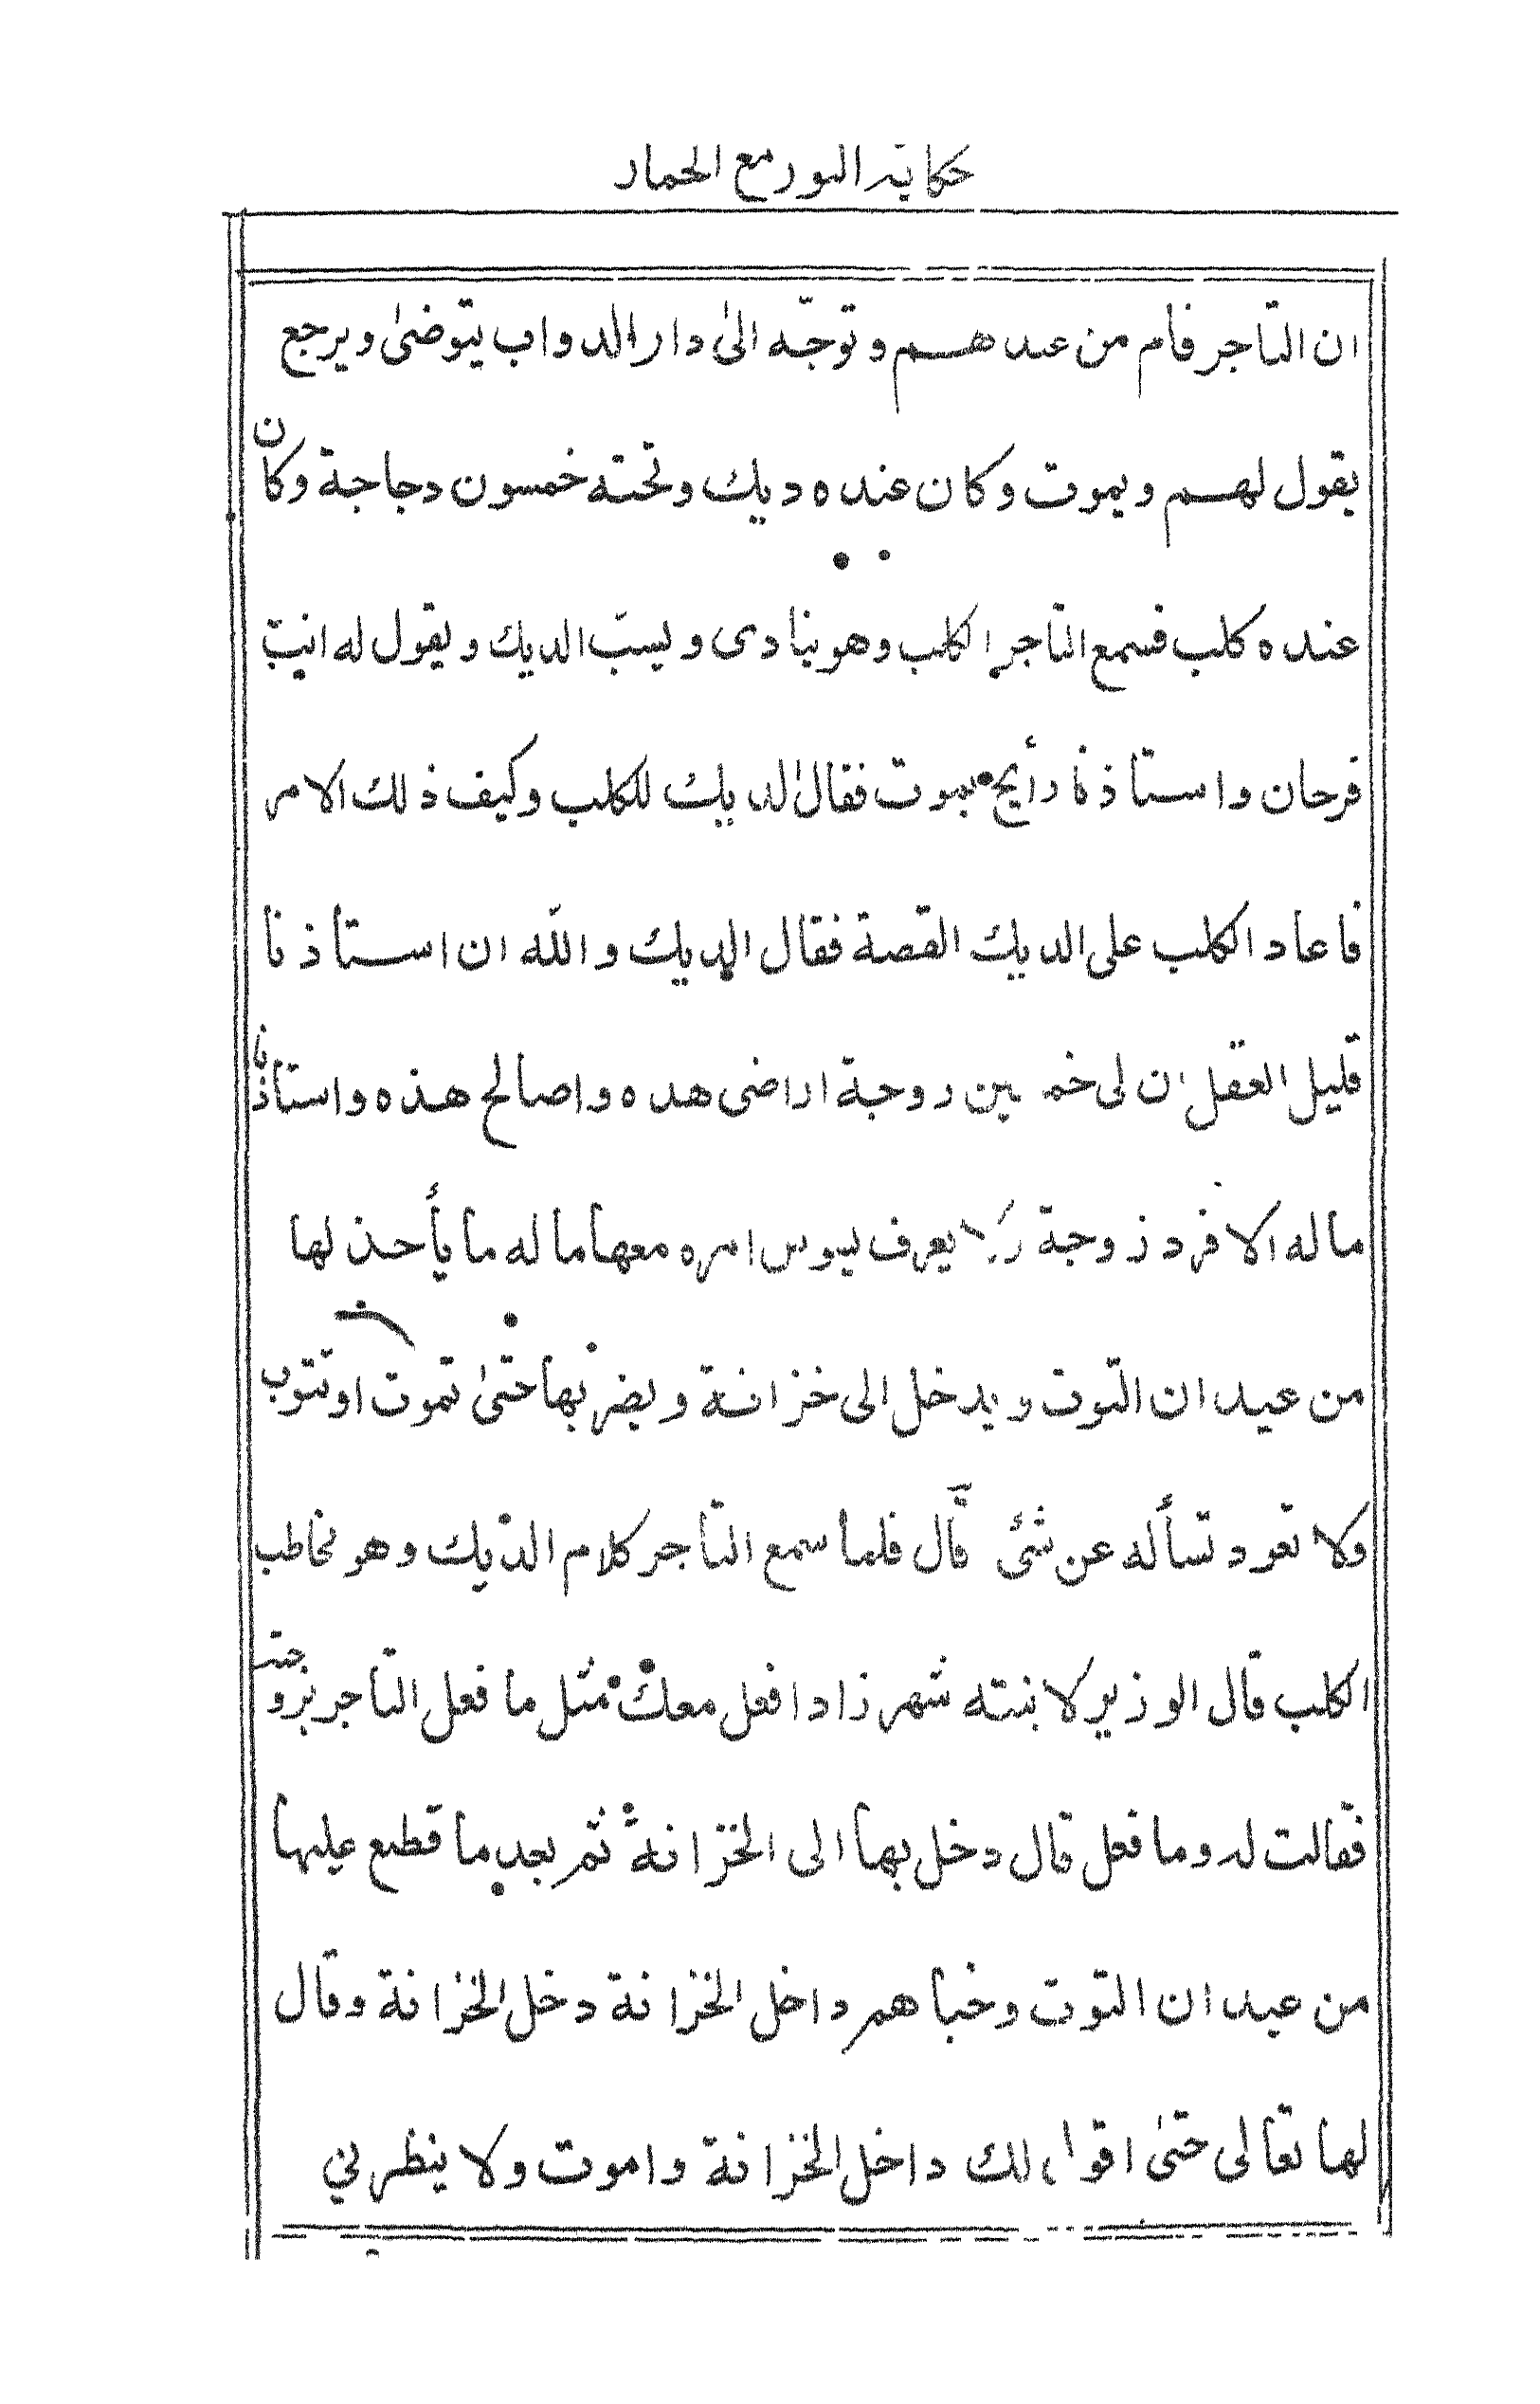 حكاية الثور مع الحمار
ان التاجر قام من عندهم وتوجّه الىٰ دار الدواب يتوضىٰ ويرجع
يقول لهم ويموت وكان عنده ديك وتحته خمسون دجاجة وكان
عنده كلب فسمع التاجر الكلب وهو ينادى ويسبّ الديك ويقول له انت
فرحان واستاذنا رأيح يموت فقال الديك للكلب وكيف ذلك الامر
فاعاد الكلب على الديك القصة فقال الديك والله ان استاذنا
قليل العقل ان لى خمسين زوجة اراضى هذه واصالح هذه واستاذنا
ما له الا فرد زوجة ولا يعرف يسوس امره معها ما له ما يأخذ لها
من عيدان التوت ويدخل الى خزانة ويضربها حتىٰ تموت او تتوب
ولا تعود تسأله عن شئ قال فلما سمع التاجر كلام الديك وهو يخاطب
الكلب قال الوزير لابنته شهرزاد افعل معك مثل ما فعل التاجر بزوجته
فقالت له وما فعل قال دخل بها الى الخزانة ثم بعد ما قطع عليها
من عيدان التوت وخبأهم داخل الخزانة دخل الخزانة وقال
لها تعالى حتىٰ اقول لك داخل الخزانة واموت ولا ينظرني